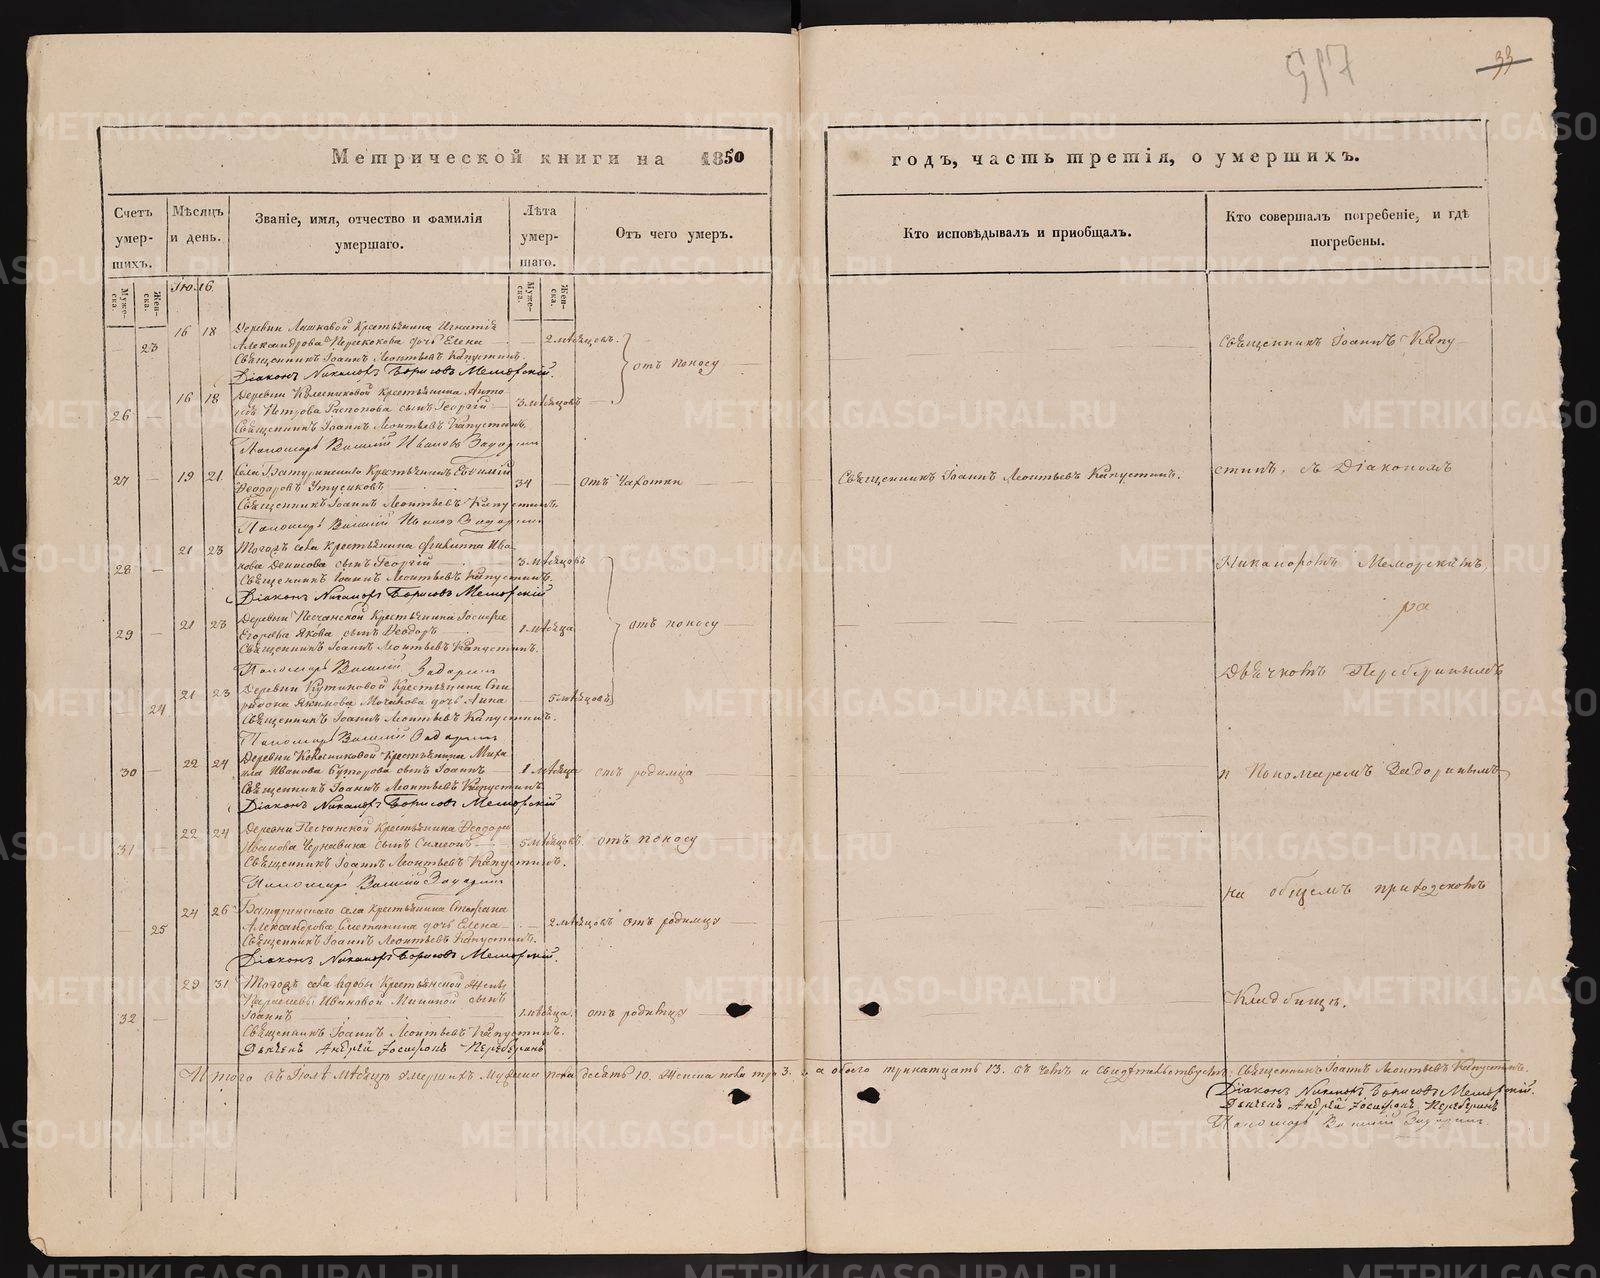 917
33
Метрической книги на 1850
годъ, часть третія, о умершихъ.
Счетъ умер-шихъ.
Мѣсяцъ и день.
Званіе, имя, отчество и фамилія умершаго.
Лѣта умер-шаго.
Отъ чего умеръ.
Кто исповѣдывалъ и приобщалъ.
Кто совершалъ погребеніе, и гдѣ погребены.
Муже-ска.
Жен-ска.
Муже-ска.
Жен-ска.
— 23 16 18 Деревни крестьянина Игнатія
Александрова дочь Елена — 2 мѣсяцовъ.
Священникъ Іоаннъ Леонтьевъ Капустинъ.
Діаконъ Никаноръ Борисовъ Меморскій.
отъ поносу
26 — 16 18 Деревни Колесниковой крестьянина Анто
Петрова сынъ Георгій — 3 мѣсяцовъ —
Священникъ Іоаннъ Леонтьевъ Капустинъ.
Пономарь Василій Ивановъ Задоринъ
27 — 19 21 Села Батуринскаго Крестьянинъ Евѳимій
Ѳеодоровъ — 34 — отъ Чахотки —
Священникъ Іоаннъ Леонтьевъ Капустинъ.
Пономарь Василій Иванов Задоринъ
28 — 21 23 Тогожъ села крестьянина Филиппа Ива-
нова Денисова сынъ Георгій — 3 мѣсяцовъ
Священникъ Іоаннъ Леонтьевъ Капустинъ.
Діаконъ Никаноръ Борисовъ Меморскій
29 — 21 23 Деревни Песчанской Крестьянина Іосифа
Егорова Якова сынъ Ѳеодоръ — 1 мѣсяца
отъ поносу —
Священникъ Іоаннъ Леонтьевъ Капустинъ.
Пономарь Василій Задоринъ
— 24 21 23 Деревни Крестьянина Спи
ридона Якимова дочь Анна — 5 мѣсяцовъ
Священникъ Іоаннъ Леонтьевъ Капустинъ.
Пономарь Василій Задоринъ
30 — 22 24 Деревни Крестьянина Миха
ила Иванова сынъ Іоаннъ — 1 мѣсяца отъ родимца
Священникъ Іоаннъ Леонтьевъ Капустинъ.
Діаконъ Никаноръ Борисовъ Меморскій
31 — 22 24 Деревни Песчанской Крестьянина Ѳеодора
Иванова сынъ Симеонъ — 5 мѣсяцовъ. отъ поносу
Священникъ Іоаннъ Леонтьевъ Капустинъ.
Пономарь Василий Задоринъ
— 25 24 26 Батуринскаго села крестьянина Стефана
Александрова Сметанина дочь Елена — 2 мѣсяцовъ отъ родимцу —
Священникъ Іоаннъ Леонтьевъ Капустинъ.
Діаконъ Никаноръ Борисовъ Меморскій.
32 — 29 31 Тогожъ села вдовы Крестьянской жены
Ивановой сынъ
Іоаннъ — 1 мѣсяца. отъ родимцу
Священникъ Іоаннъ Леонтьевъ Капустинъ.
Дьячекъ Андрей Перебёринъ
Священникъ Іоаннъ Леонтьевъ Капустинъ.
Священникъ Іоаннъ Капу-
стинъ, съ Діакономъ
Никаноромъ Меморскимъ,
Дьячкомъ Переберинымъ
и Пономаремъ Задоринымъ
на общемъ приходскомъ
Кладбищѣ.
Итого въ Іюлѣ мѣсяцѣ умершихъ мужеска пола десять 10. женска пола три 3. а обоего тринатцать 13. въ чемъ и свидѣтельствуемъ. Священникъ Іоаннъ Леонтьевъ Капустинъ.
Діаконъ Никаноръ Борисовъ Меморскій.
Дьячекъ Андрей Переберинъ
Пономарь Василій Задоринъ
METRIKI.GASO-URAL.RU